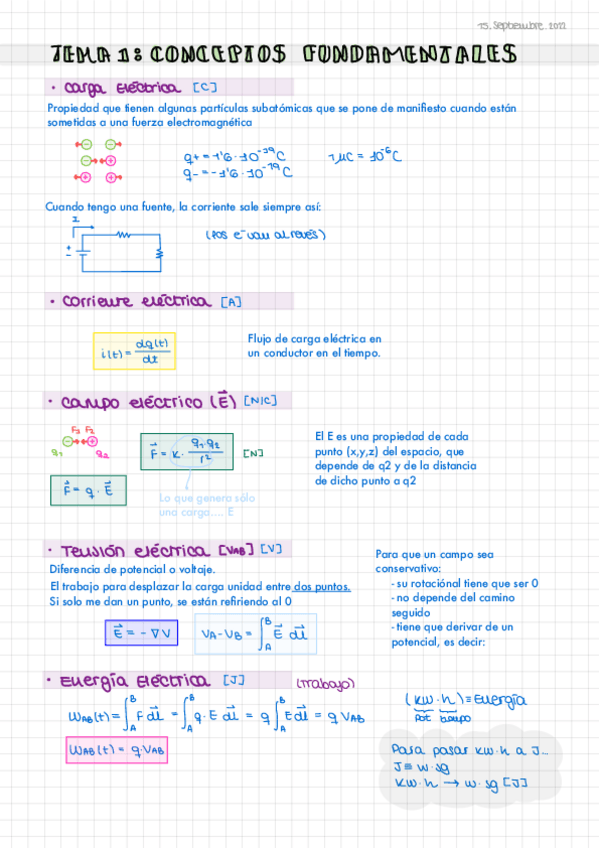 15. Septiembre. 2022
TEMA 1: CONCEPTOS FUNDAMENTALES
• Carga Eléctrica [C]
Propiedad que tienen algunas partículas subatómicas que se pone de manifiesto cuando están
sometidas a una fuerza electromagnética
q+ = 1'6 · 10^-19 C
1 μC = 10^-6 C
q- = -1'6 · 10^-19 C
Cuando tengo una fuente, la corriente sale siempre así:
I
+
-
(los e⁻ van al revés)
• Corriente eléctrica [A]
i(t) = dq(t)/dt
Flujo de carga eléctrica en
un conductor en el tiempo.
• Campo eléctrico (E⃗) [N/C]
F₁ F₂
q₁ q₂
F⃗ = K · q₁·q₂/r² [N]
F⃗ = q · E⃗
Lo que genera sólo
una carga.... E
El E es una propiedad de cada
punto (x,y,z) del espacio, que
depende de q2 y de la distancia
de dicho punto a q2
• Tensión eléctrica [VAB] [V]
Diferencia de potencial o voltaje.
El trabajo para desplazar la carga unidad entre dos puntos.
Si solo me dan un punto, se están refiriendo al 0
E⃗ = -∇V
VA-VB = ∫_A^B E⃗ dl⃗
Para que un campo sea
conservativo:
- su rotaciónal tiene que ser 0
- no depende del camino
seguido
- tiene que derivar de un
potencial, es decir:
• Energía Eléctrica [J] (trabajo)
WAB(t) = ∫_A^B F⃗ dl⃗ = ∫_A^B q·E dl⃗ = q ∫_A^B E⃗ dl⃗ = q VAB
WAB(t) = q·VAB
(kW·h) ≡ Energía
Pot tiempo
Para pasar kW·h a J...
J ≡ W·sg
kW·h → W·sg [J]